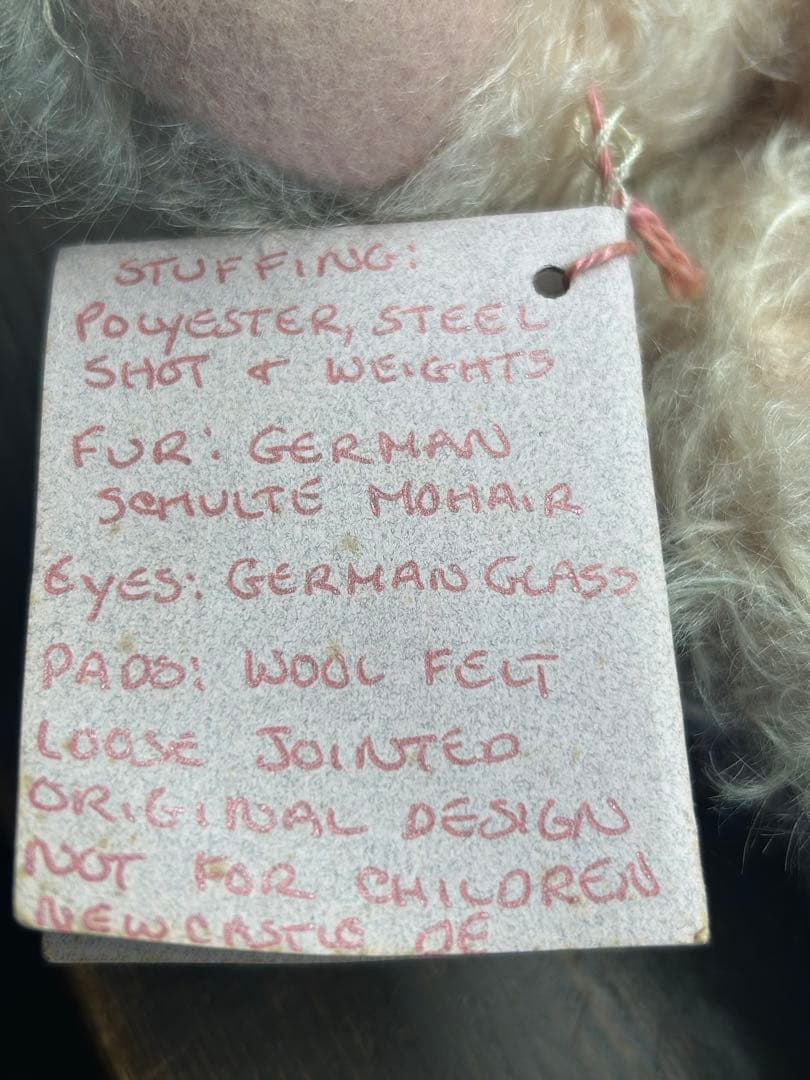 STUFFING:
POLYESTER, STEEL
SHOT & WEIGHTS
FUR: GERMAN
SCHULTE MOHAIR
EYES: GERMAN GLASS
PADS: WOOL FELT
LOOSE JOINTED
ORIGINAL DESIGN
NOT FOR CHILDREN
NEWCASTLE DE